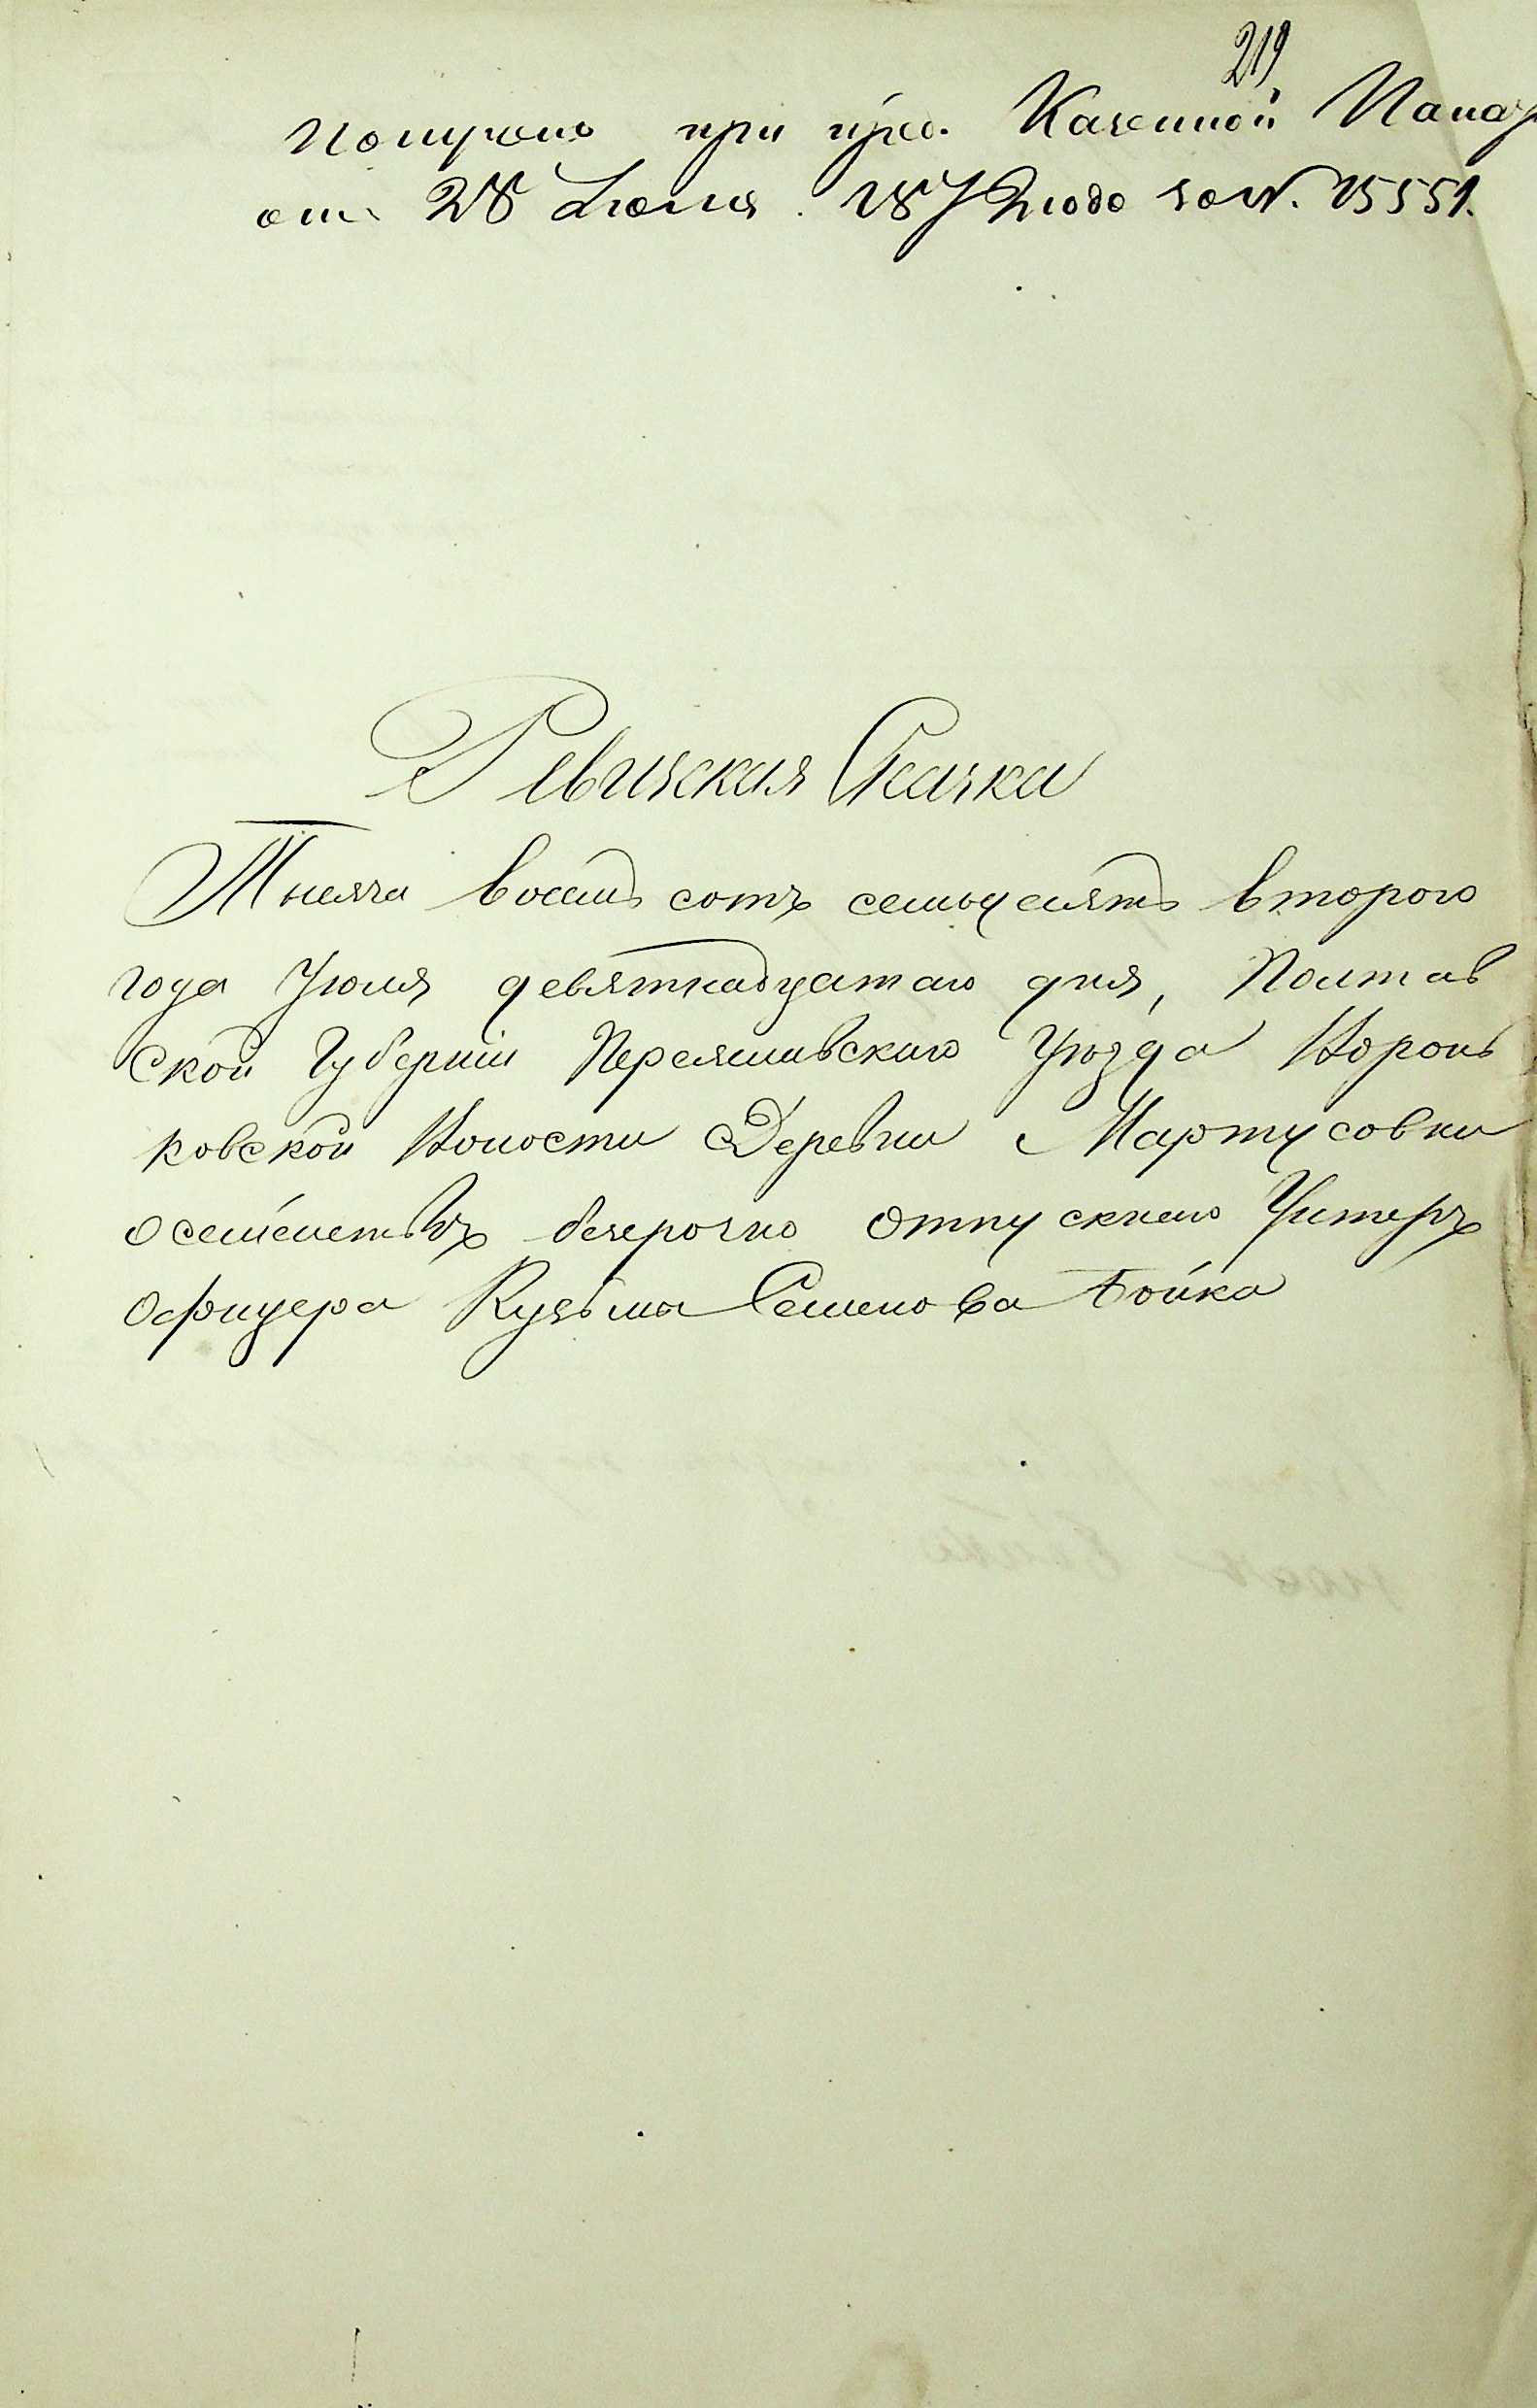 219
Получено при пред. Казенной Палат
отъ 28 Іюля 1872 года за N. 15551.
Ревизская Сказка
Тысяча восемь сотъ семьдесятъ второго
года Іюля девятнадцатаго дня, Полтав
ской Губерніи Переяславскаго Уѣзда Воронь
ковской Волости Деревни Мартусовки
о семействѣ безсрочно отпускного Унтеръ
офицера Кузьма Семенова Бойка